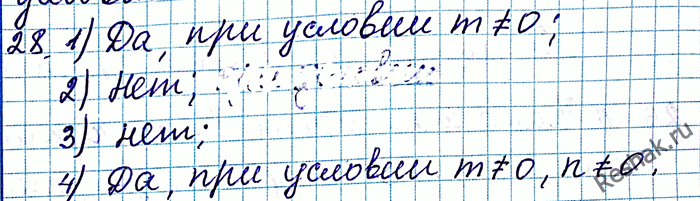 28. 1) Да, при условии m ≠ 0;
2) Нет;
3) нет;
4) Да, при условии m ≠ 0, n ≠ 0.
Reshak.ru